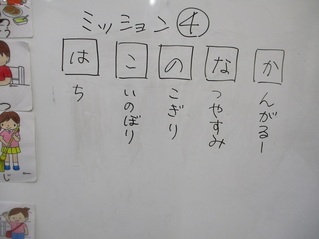 ミッション④
かんがるー
なつやすみ
のこぎり
こいのぼり
はち
つ
じ